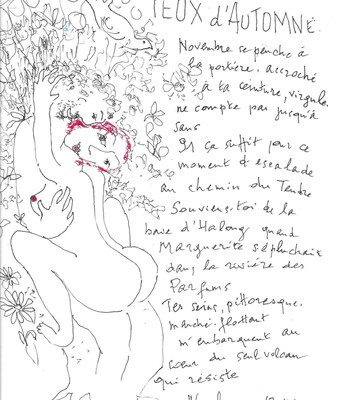 YEUX d'AUTOMNE
Novembre se penche à
la portière. accroché
à ta ceinture, virgule.
ne compte pas jusqu'à
sans
ça suffit pour ce
moment d'escalade
au chemin du Tendre
Souviens-toi de la
baie d'Halong quand
Marguerite s'épluchait
dans la rivière des
Parfums
Tes seins, pittoresque.
marché-flottant
m'embarquent au
cœur du seul volcan
qui résiste